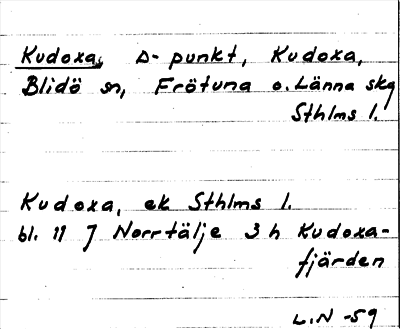 Kudoxa, Δ-punkt, Kudoxa,
Blidö sn, Frötuna o. Länna skg
Sthlms l.
Kudoxa, ek Sthlms l.
bl. 11 J Norrtälje 3 h Kudoxa-
fjärden
L.N -59